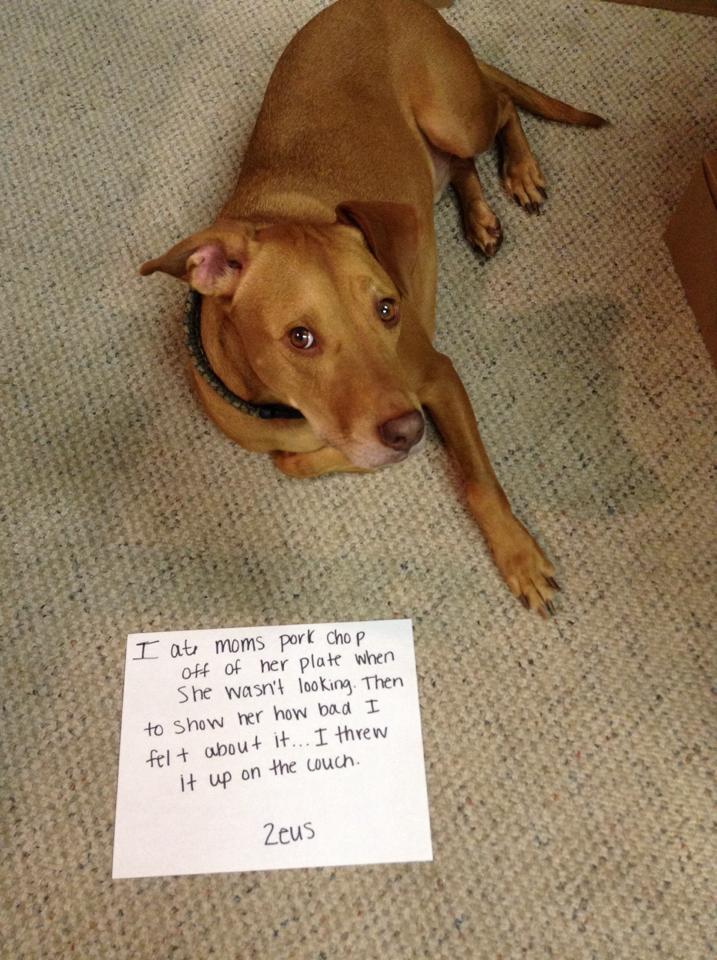 I ate moms pork chop
off of her plate when
She wasn't looking. Then
to show her how bad I
felt about it... I threw
it up on the couch.
Zeus